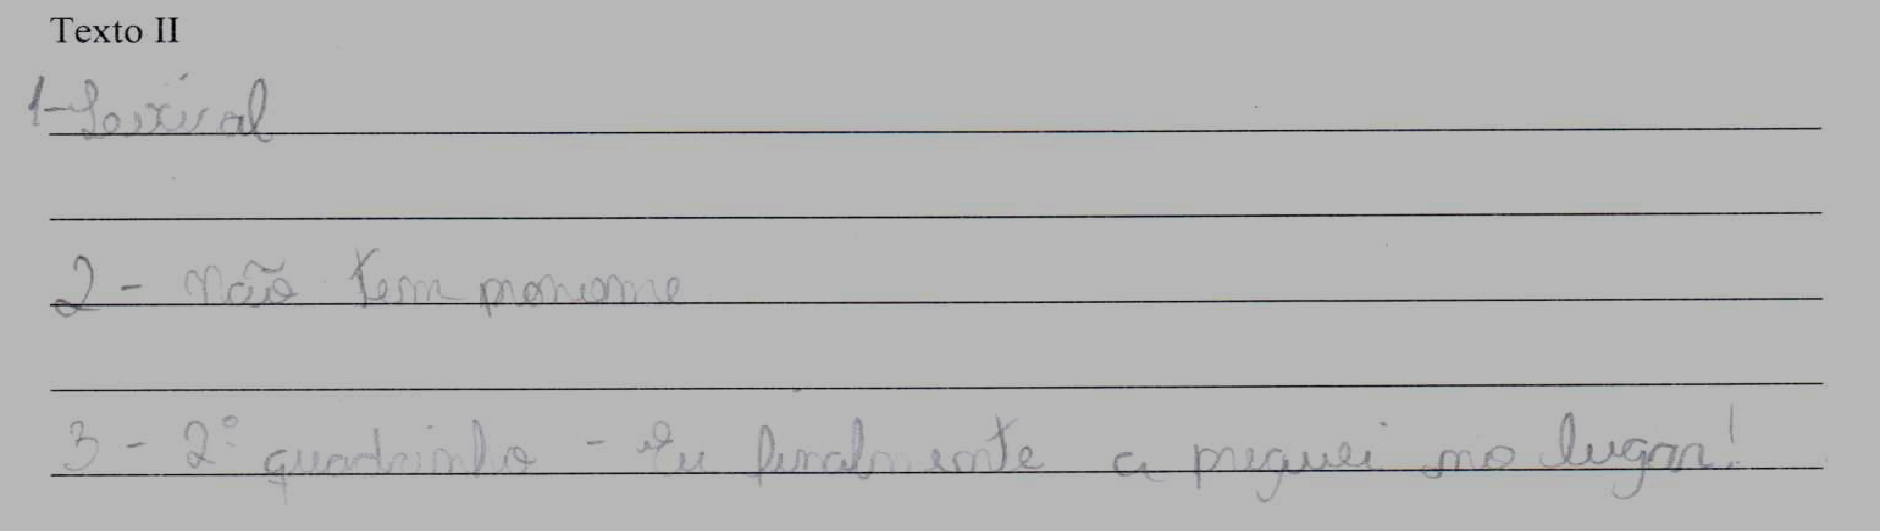 Texto II
1-
2 - Não tem pronome
3 - 2º quadrinho - Eu finalmente a peguei no lugar!